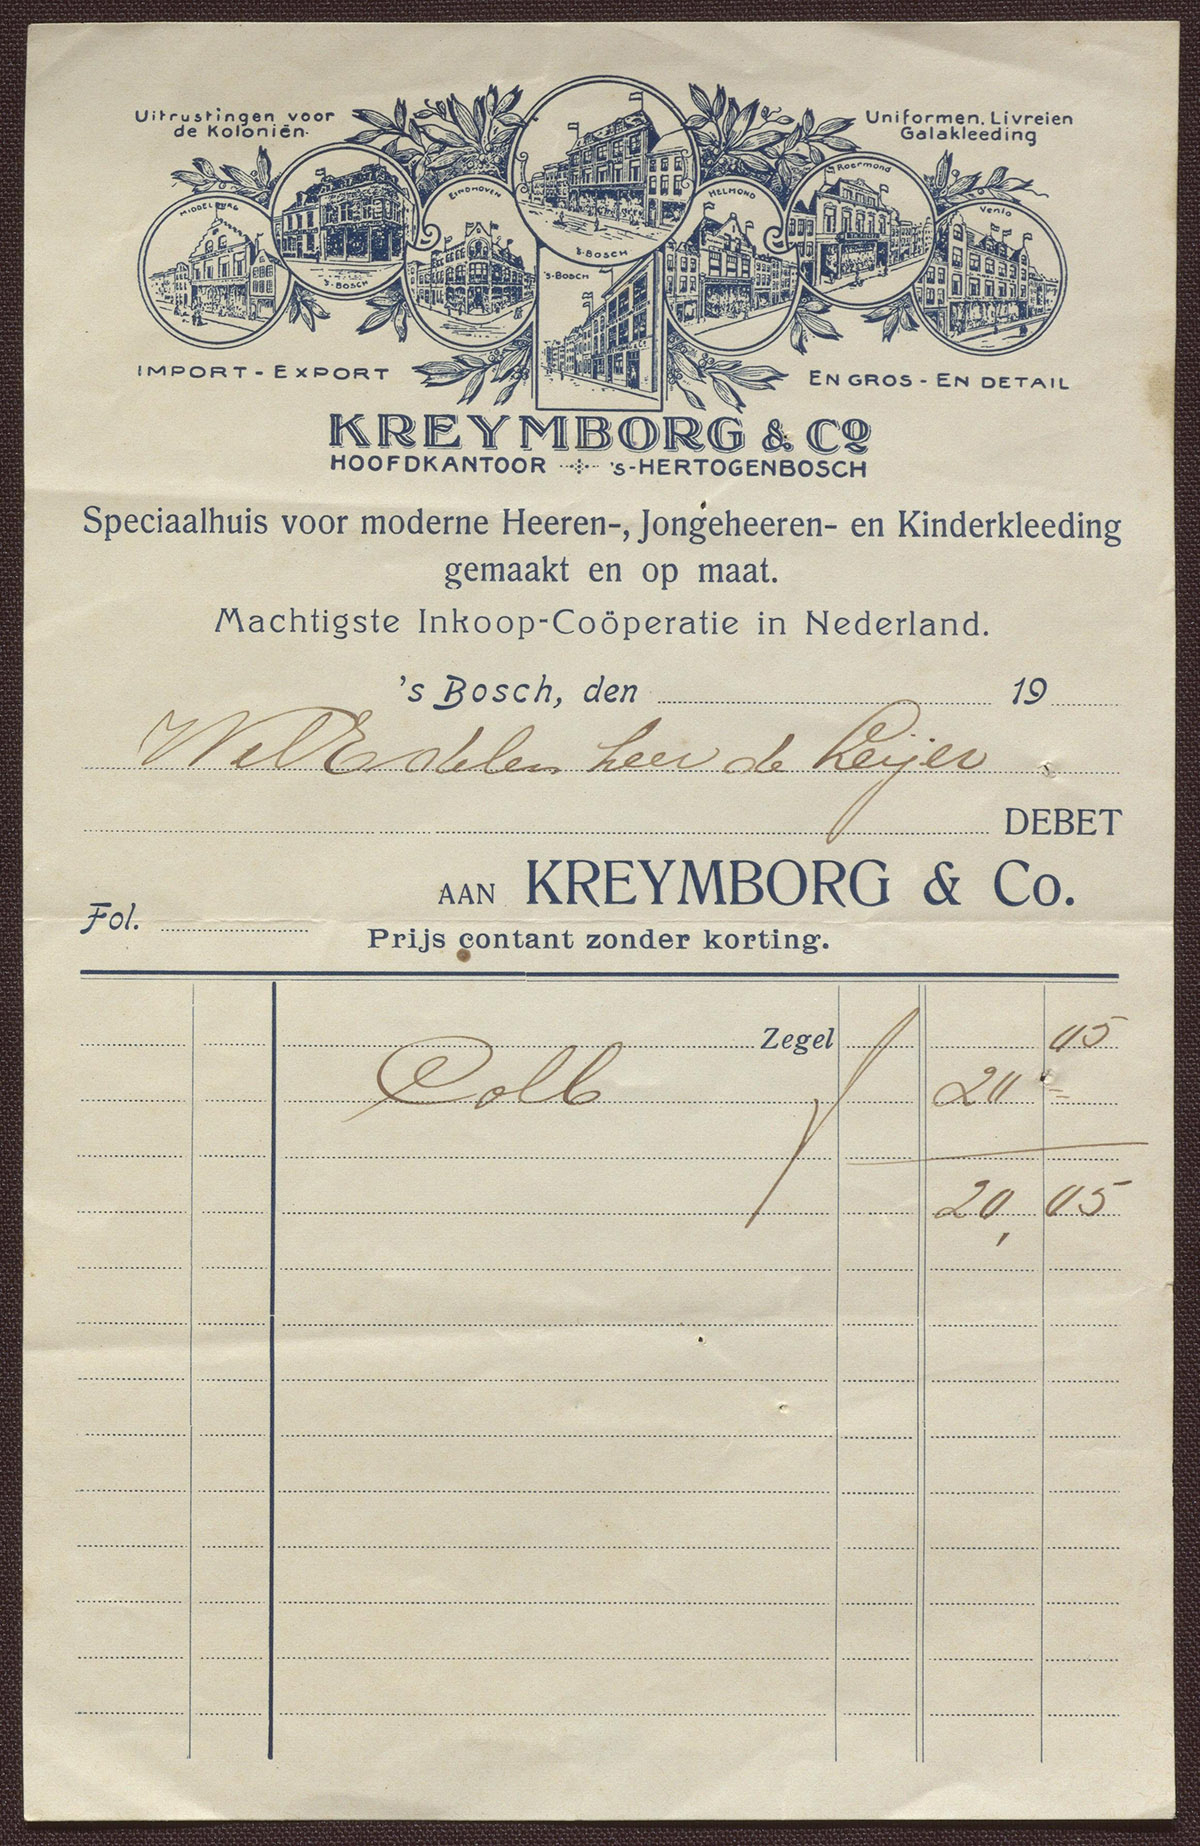 Uitrustingen voor
de Koloniën.
Uniformen. Livreien
Galakleeding
MIDDELBURG
'S-BOSCH
EINDHOVEN
'S-BOSCH
'S-BOSCH
HELMOND
Roermond
Venlo
IMPORT - EXPORT
EN GROS - EN DETAIL
KREYMBORG & Co
HOOFDKANTOOR 's-HERTOGENBOSCH
Speciaalhuis voor moderne Heeren-, Jongeheeren- en Kinderkleeding
gemaakt en op maat.
Machtigste Inkoop-Coöperatie in Nederland.
's Bosch, den 19
WelEdelen heer de Leijer
DEBET
AAN KREYMBORG & Co.
Fol.
Prijs contant zonder korting.
Zegel 05
Colb 20 =
20, 05